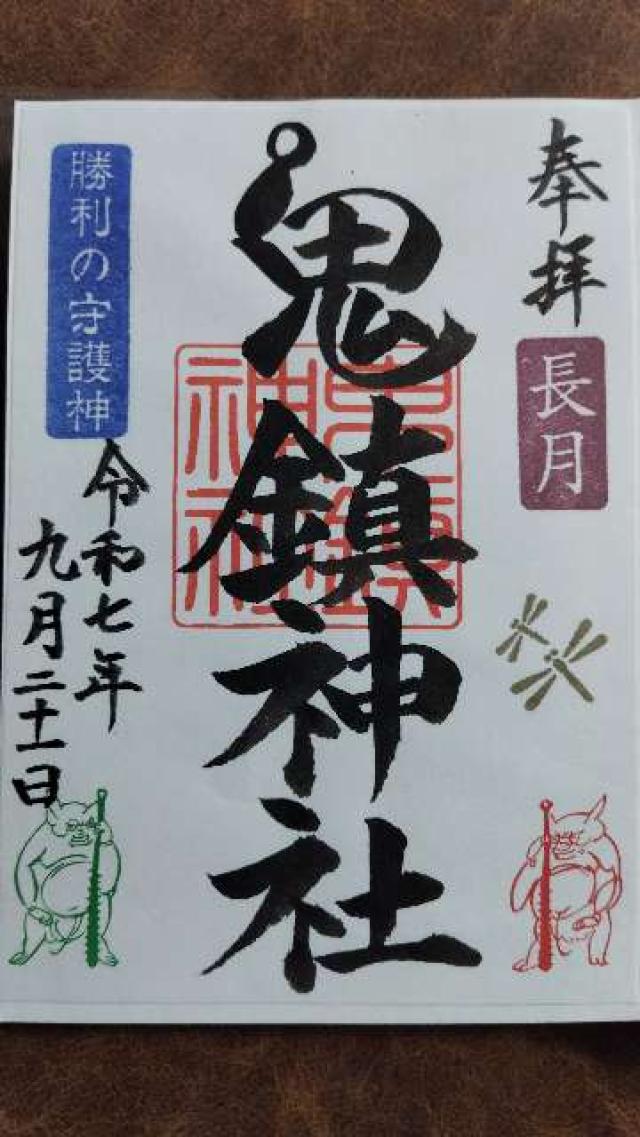 奉拝
長月
鬼鎮神社
鬼鎮神社
勝利の守護神
令和七年
九月二十一日